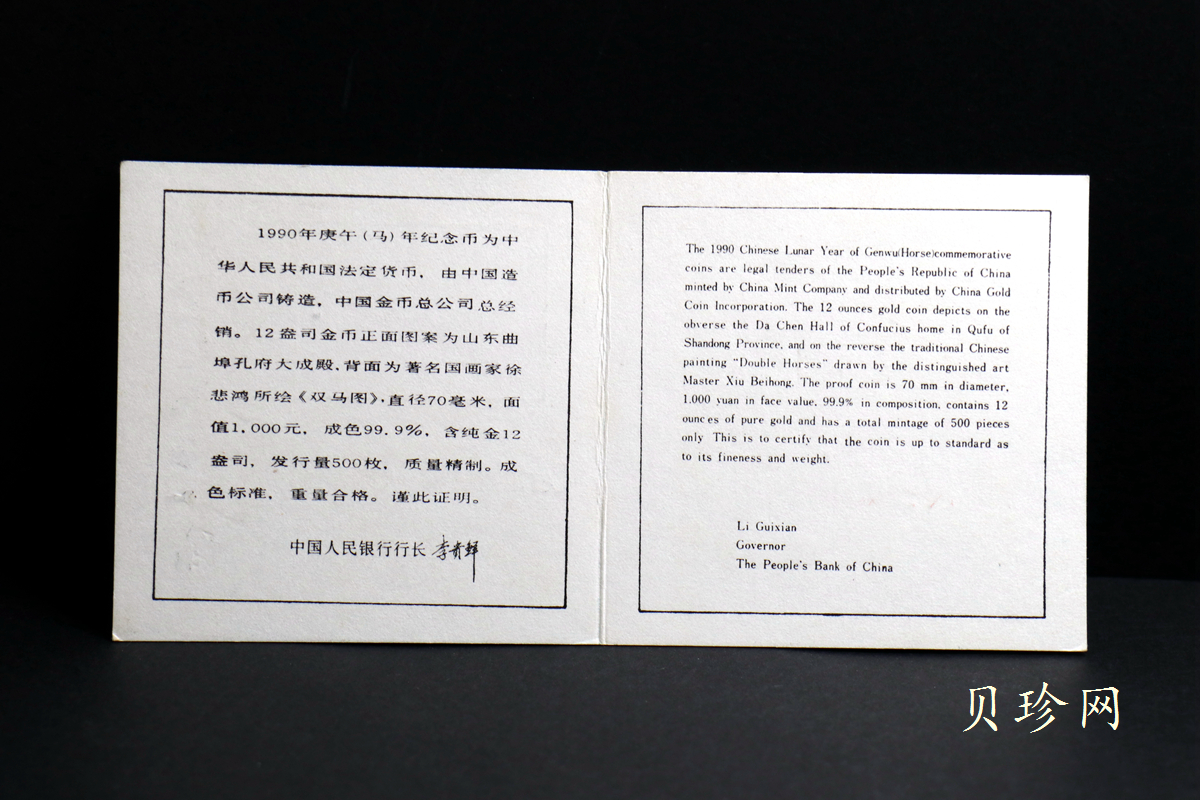 1990年庚午(马)年纪念币为中
华人民共和国法定货币，由中国造
币公司铸造，中国金币总公司总经
销。12盎司金币正面图案为山东曲
埠孔府大成殿、背面为著名国画家徐
悲鸿所绘《双马图》·直径70毫米，面
值1,000元，成色99.9%，含纯金12
盎司，发行量500枚，质量精制。成
色标准，重量合格。谨此证明。
中国人民银行行长 李贵鲜
The 1990 Chinese Lunar Year of Genwu(Horse)commemorative
coins are legal tenders of the People's Republic of China
minted by China Mint Company and distributed by China Gold
Coin Incorporation. The 12 ounces gold coin depicts on the
obverse the Da Chen Hall of Confucius home in Qufu of
Shandong Province, and on the reverse the traditional Chinese
painting "Double Horses" drawn by the distinguished art
Master Xiu Beihong. The proof coin is 70 mm in diameter,
1,000 yuan in face value, 99.9% in composition, contains 12
ounces of pure gold and has a total mintage of 500 pieces
only This is to certify that the coin is up to standard as
to its fineness and weight.
Li Guixian
Governor
The People's Bank of China
贝珍网